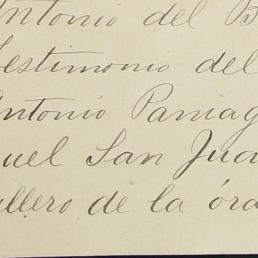 Antonio del B
Testimonio del
Antonio Paniag
uel San Jua
llero de la órd